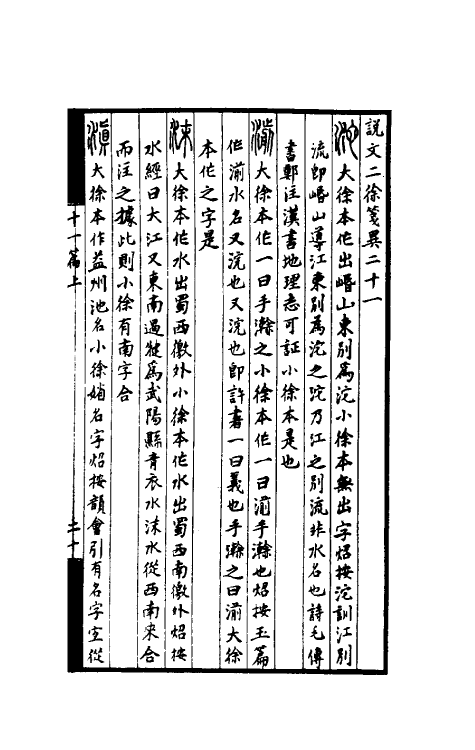 說文二徐箋異二十一
沱大徐本作出崏山東別爲沱小徐本無出字炤按沱訓江別
流即崏山導江東別爲沱之沱乃江之別流非水名也詩毛傳
書鄭注漢書地理志可証小徐本是也
湔大徐本作一曰手澣之小徐本作一曰湔手澣也炤按玉篇
作湔水名又浣也又浣也即許書一曰義也手澣之曰湔大徐
本作之字是
沫大徐本作水出蜀西徼外小徐本作水出蜀西南徼外炤按
水經曰大江又東南過犍爲武陽縣青衣水沫水從西南來合
而注之據此則小徐有南字合
滇大徐本作益州池名小徐無名字炤按韻會引有名字宜從
十一篇上
二十